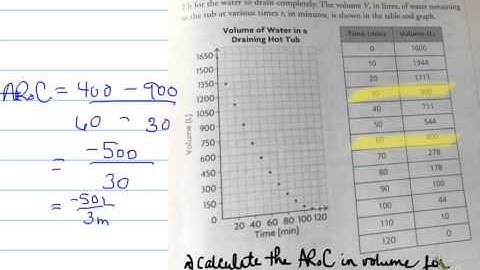 2 h for the water to drain completely. The volume V, in litres, of water remaining
in the tub at various times t, in minutes, is shown in the table and graph.
Volume of Water in a
Draining Hot Tub
1650
1500
1350
1200
1050
900
750
600
450
300
150
0
20 40 60 80 100 120
Volume (L)
Time (min)
Time (min) Volume (L)
0 1600
10 1344
20 1111
30 900
40 711
50 544
60 400
70 278
80 178
90 100
100 44
110 10
120 0
ARoC = 400 - 900
60 - 30
= -500
30
= -50L
3m
a) Calculate the ARoC in volume for